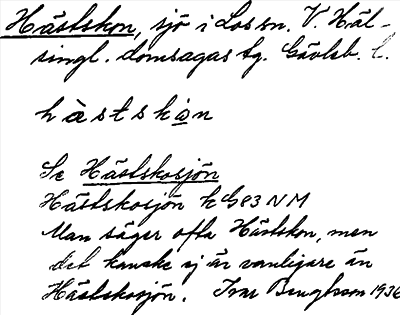 Hästskon, sjö i Los sn. V. Häl-
singl. domsagas tg. Gävleb. l.
hàstskòn
Se Hästskosjön
Hästskosjön k G83 NM
Man säger ofta Hästskon, men
det kanske ej är vanligare än
Hästskosjön. Ivar Bengtsson 1936